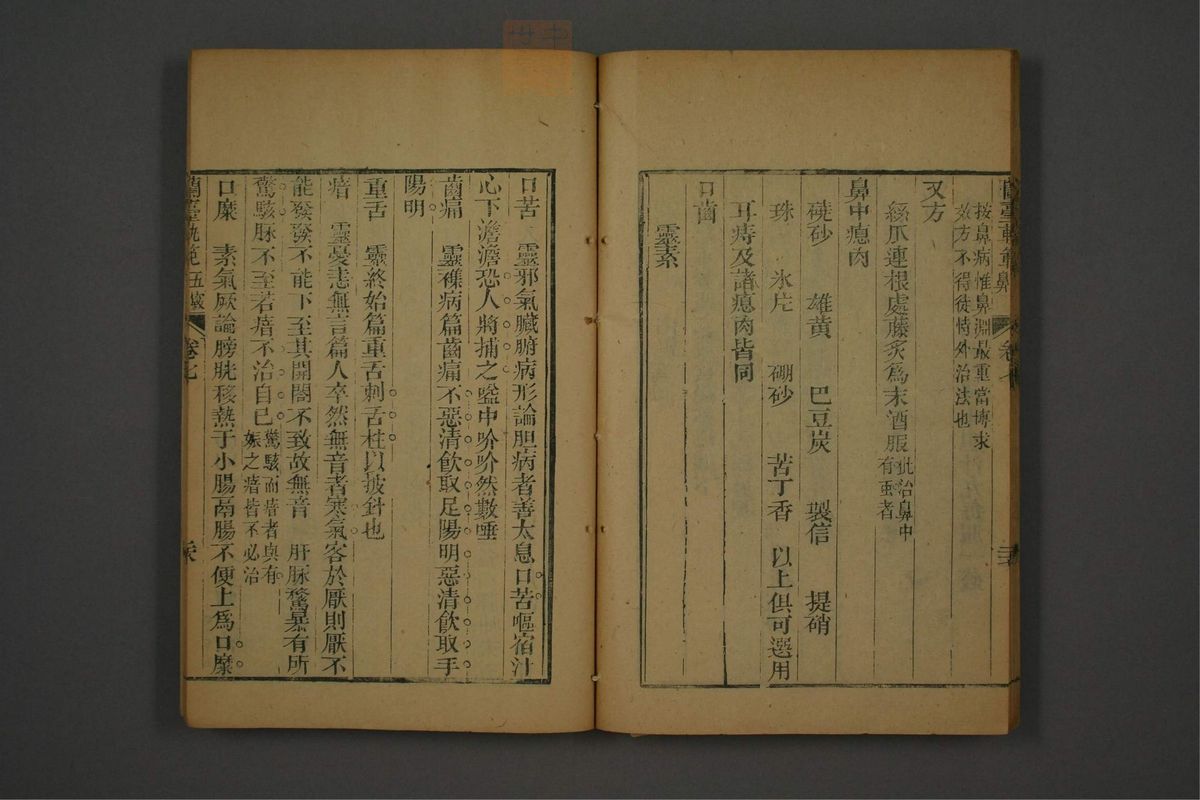 蘭臺軌範 鼻 卷七
按鼻病惟鼻淵最重當博求
效方不得徒恃外治法也
又方
絲爪連根處藤炙爲末酒服 此治鼻中
有虫者
鼻中瘜肉
磠砂 雄黃 巴豆炭 製信 提硝
珠 氷片 硼砂 苦丁香 以上俱可選用
耳痔及諸瘜肉皆同
口齒
靈素
口苦 靈邪氣臟腑病形論胆病者善太息口苦嘔宿汁
心下澹澹恐人將捕之嗌中吤吤然數唾
齒痛 靈襍病篇齒痛不惡清飲取足陽明惡清飲取手
陽明
重舌 靈終始篇重舌刺舌柱以披針也
瘖 靈憂恚無言篇人卒然無音者寒氣客於厭則厭不
能發發不能下至其開闔不致故無音 肝脉騖暴有所
驚駭脉不至若瘖不治自已 驚駭而瘖者與有
娠之瘖皆不必治
口糜 素氣厥論膀胱移熱于小腸鬲腸不便上爲口糜
蘭臺軌範 卷七